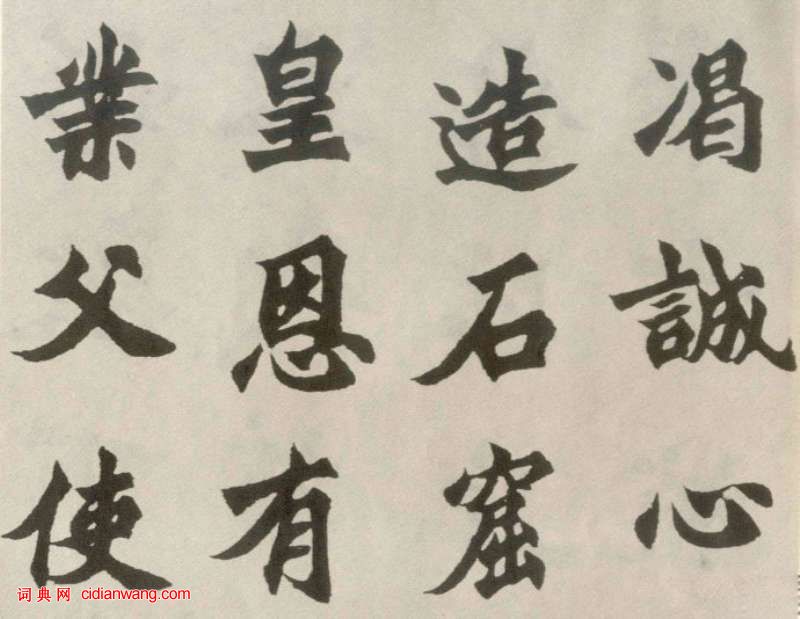 渴誠心
造石窟
皇恩有
業父使
词典网 cidianwang.com